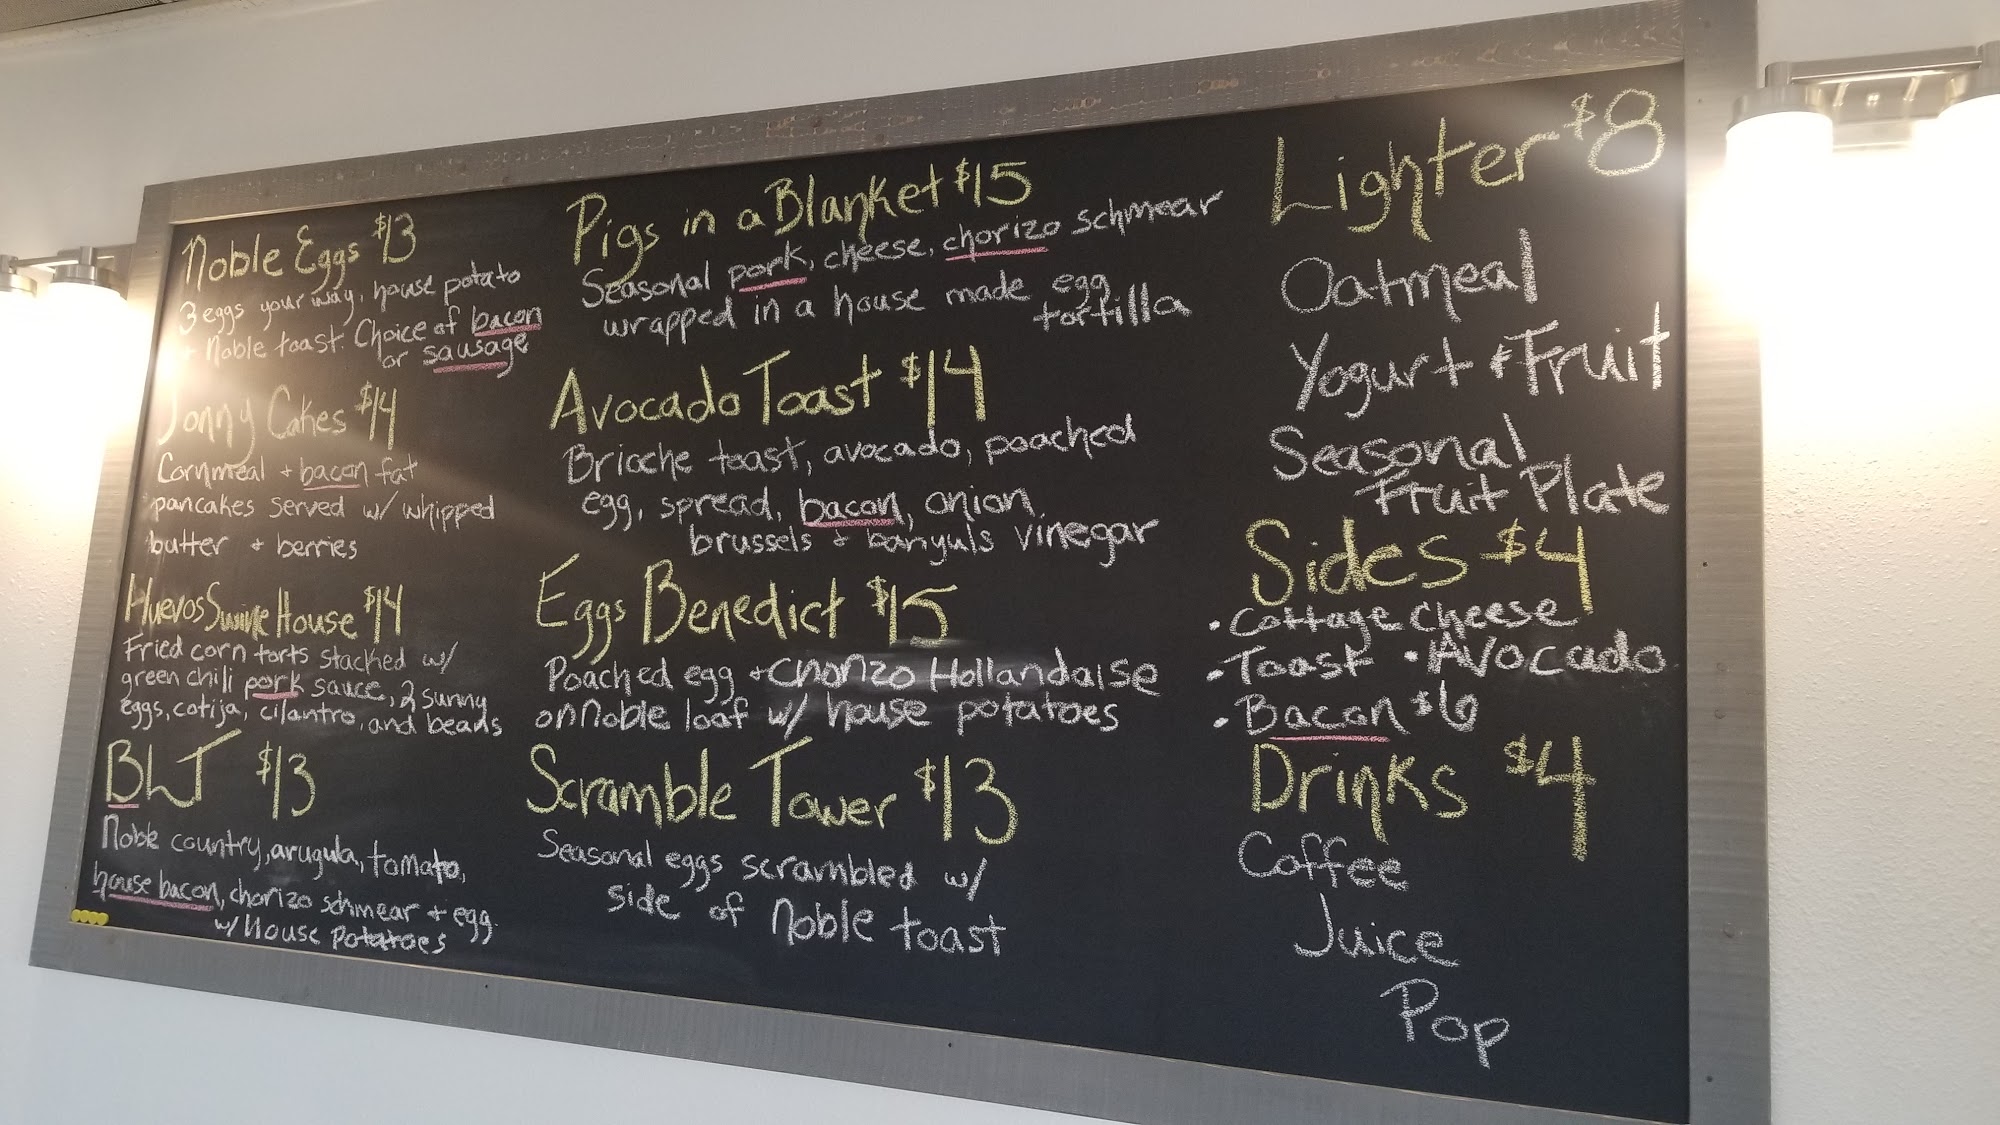 Noble Eggs $13
3 eggs your way, house potato
+ Noble toast. Choice of bacon
or sausage
Jonny Cakes $14
Cornmeal + bacon fat
pancakes served w/ whipped
butter + berries
Huevos Swine House $14
Fried corn torts stacked w/
green chili pork sauce, 2 sunny
eggs, cotija, cilantro, and beans
BLT $13
Noble country, arugula, tomato,
house bacon, chorizo schmear + egg
w/ House Potatoes
Pigs in a Blanket $15
Seasonal pork, cheese, chorizo schmear
wrapped in a house made egg
tortilla
Avocado Toast $14
Brioche toast, avocado, poached
egg, spread, bacon, onion,
brussels + banyuls vinegar
Eggs Benedict $15
Poached egg + chorizo Hollandaise
on Noble loaf w/ house potatoes
Scramble Tower $13
Seasonal eggs scrambled w/
side of Noble toast
Lighter $8
Oatmeal
Yogurt + Fruit
Seasonal
Fruit Plate
Sides $4
• Cottage Cheese
• Toast • Avocado
• Bacon $6
Drinks $4
Coffee
Juice
Pop